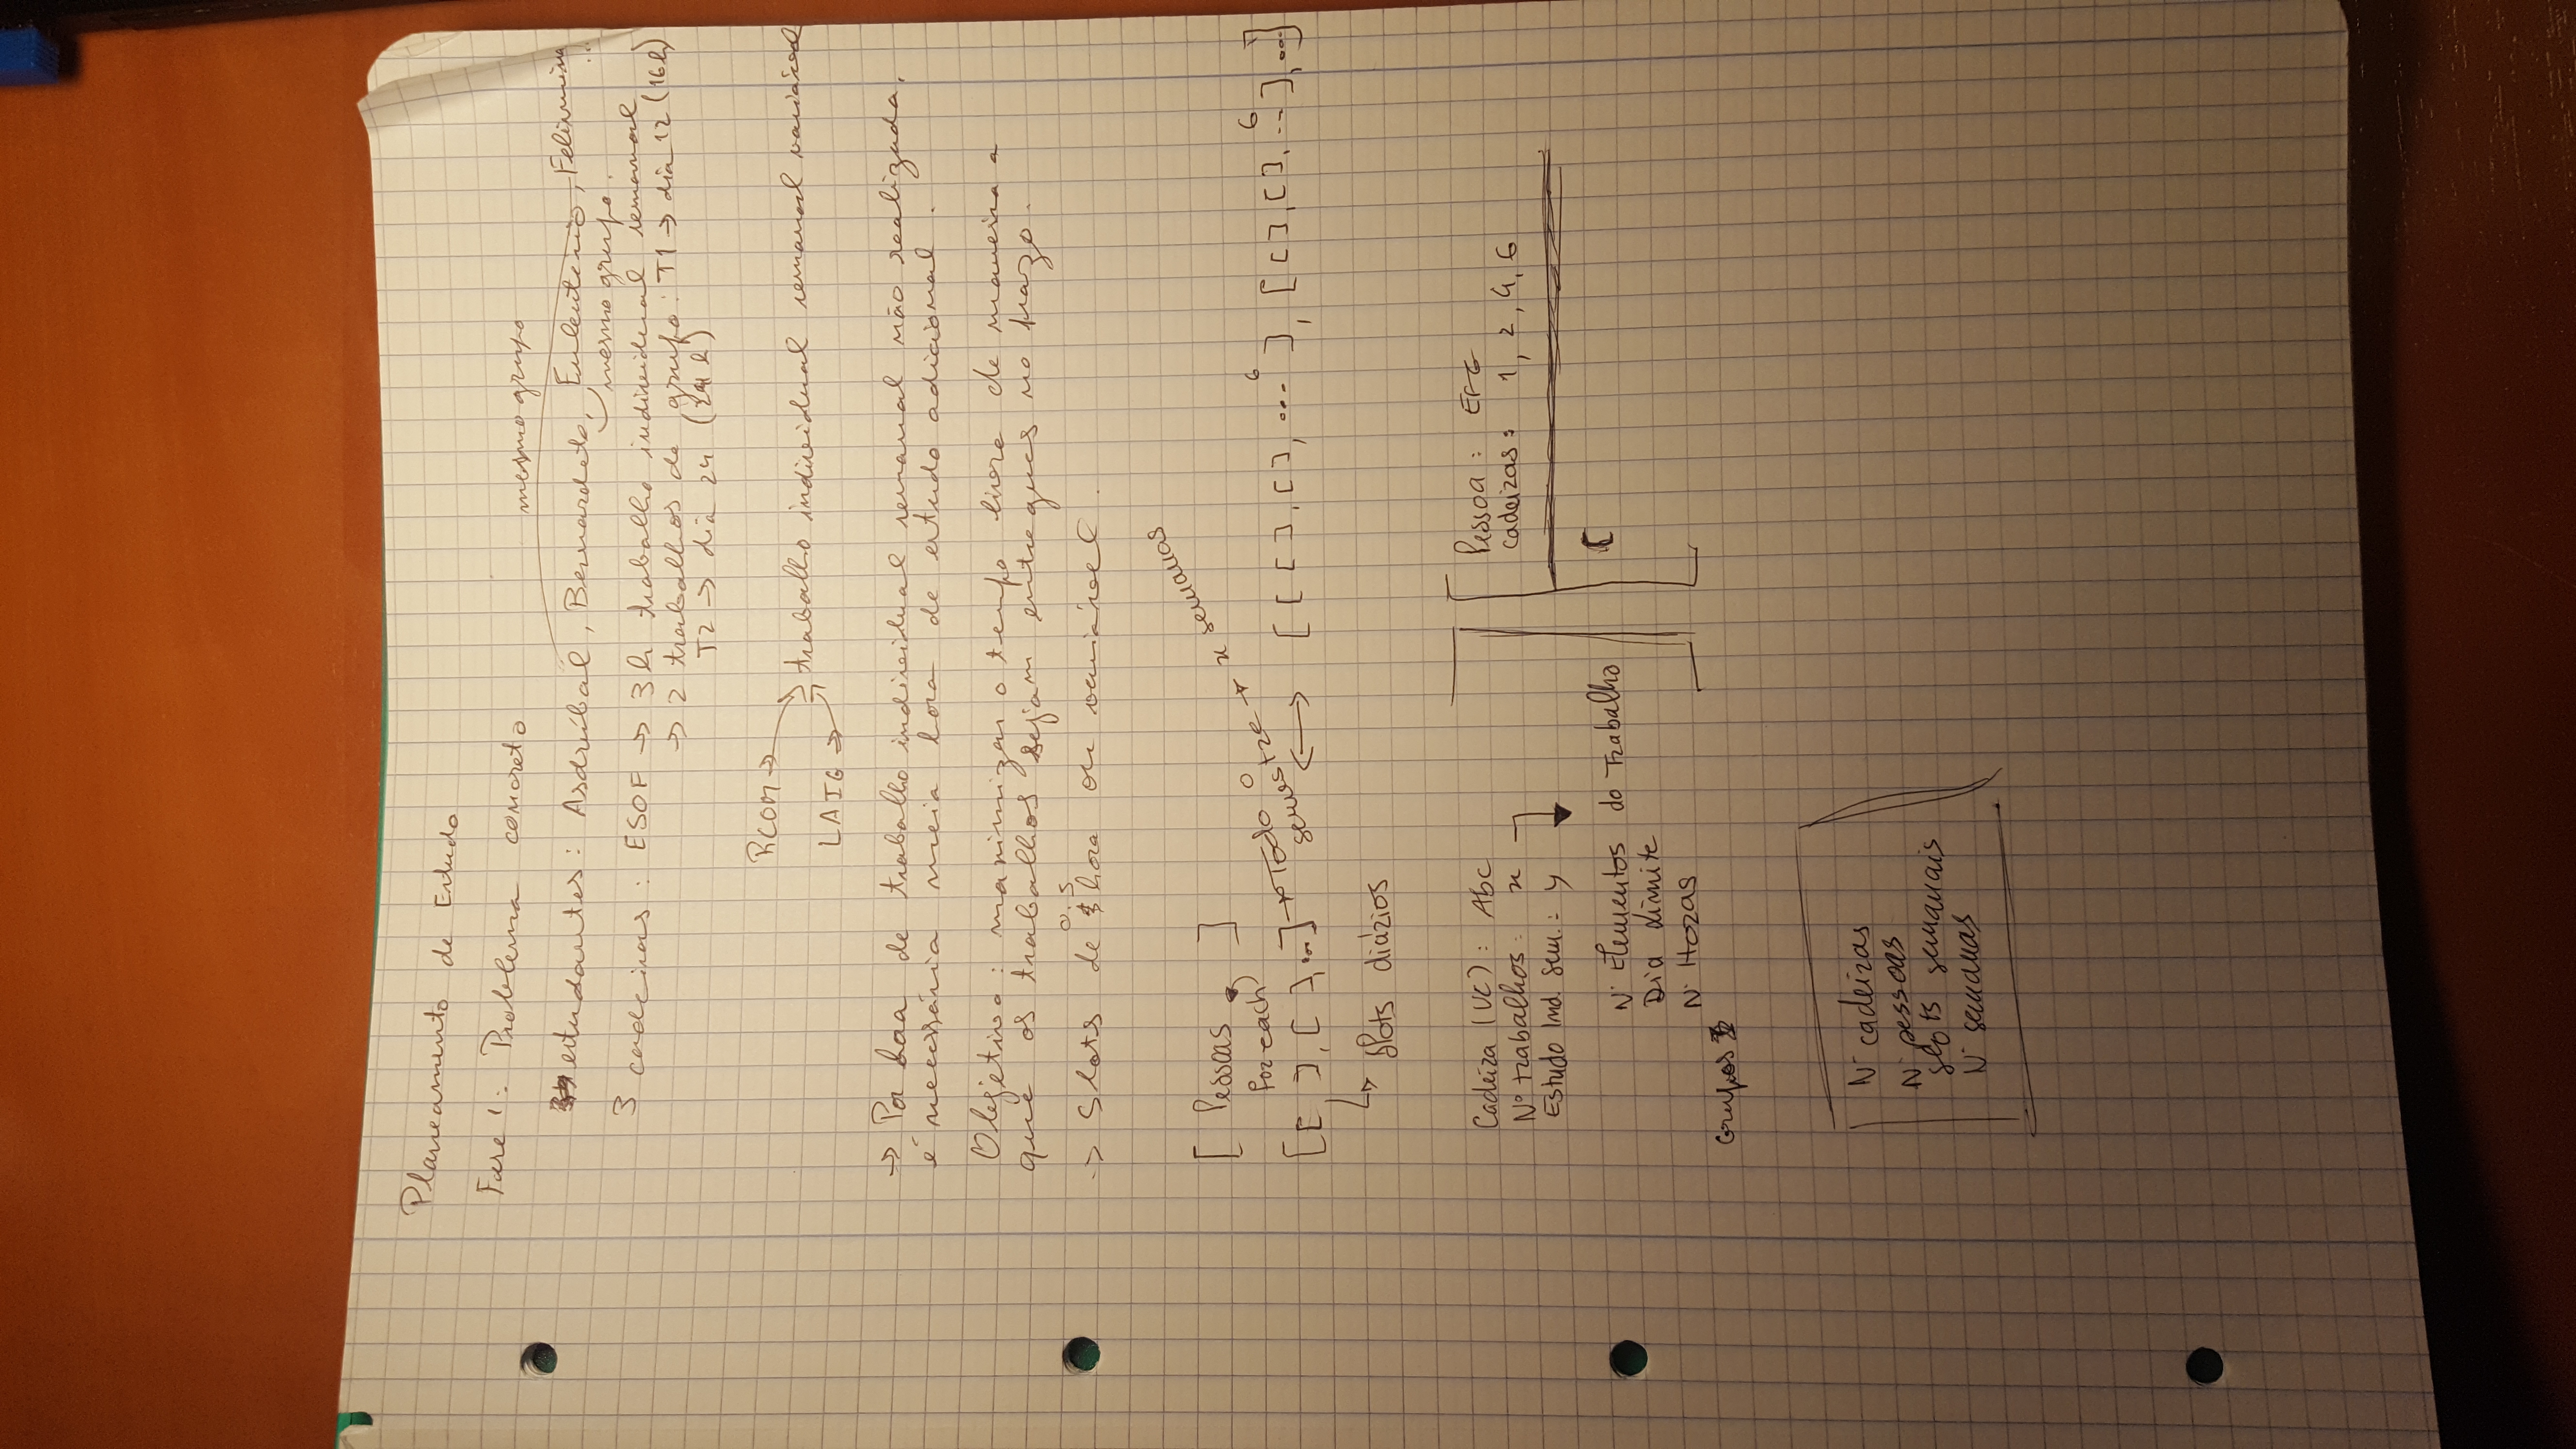 Planeamento de Estudo
Fase 1: Problema concreto
mesmo grupo
estudantes: Asdrúbal, Bernardete, Euleutério, Felismina
...
mesmo grupo.
3 cadeiras: ESOF → 3h trabalho individual semanal
→ 2 trabalhos de grupo: T1 → dia 12 (16h)
T2 → dia 24 (24 h)
RCOM →
trabalho individual semanal variável
LAIG →
→ Por hora de trabalho individual semanal não realizada,
é necessária meia hora de estudo adicional.
Objetivo: maximizar o tempo livre de maneira a
que os trabalhos sejam entregues no prazo.
0.5
→ Slots de hora ou variável.
[ Pessoas ]
for each
[[ ], [ ], ...] → Todo o semestre → x semanas
↔ [ [ [ ], [ ], ... 6 ], [ [ ], [ ], ... 6 ], ...]
↳ Slots diários
Cadeira (UC): Abc
Nº trabalhos: x
Estudo Ind. Sem.: y
N· Elementos do Trabalho
Dia Limite
N· Horas
Grupos
Pessoa: EFG
cadeiras: 1, 2, 4, 6
[
N· cadeiras
N· pessoas
slots semanais
N· semanas